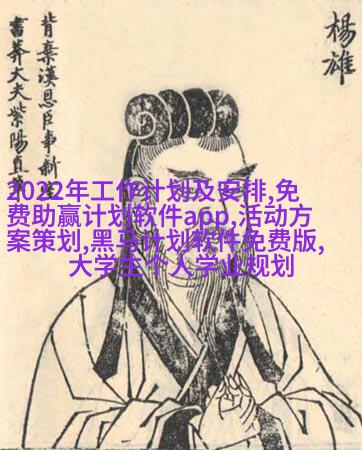 楊雄
背棄漢恩臣事新
書莽大夫紫陽直筆
2022年工作计划及安排,免
费助赢计划软件app,活动方
案策划,黑马计划软件免费版,
大学生个人学业规划